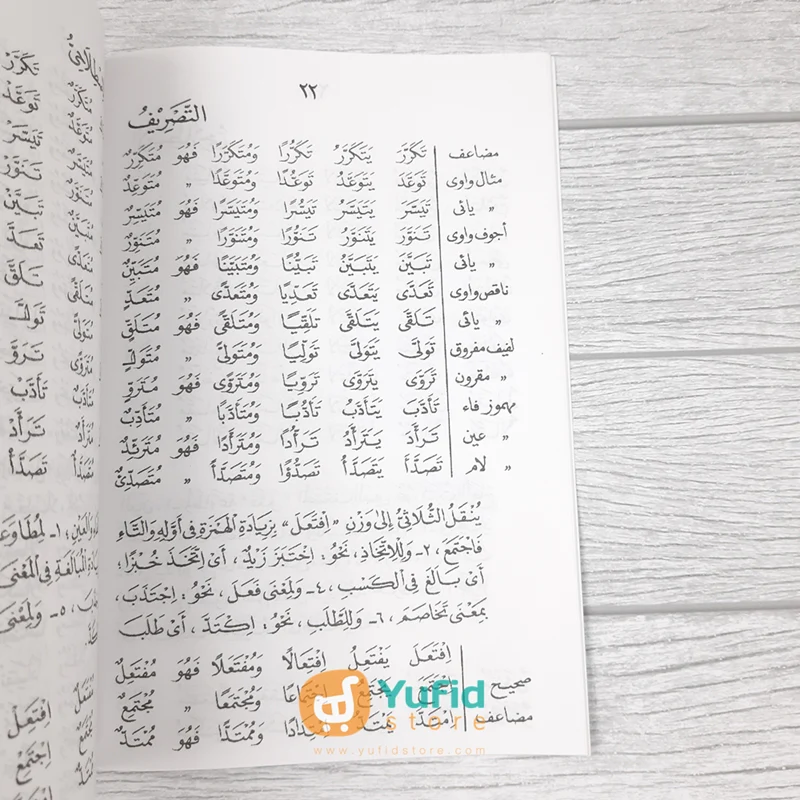 ٢٢
التَّصْرِيْفُ
مضاعف تَكَرَّرَ يَتَكَرَّرُ تَكَرُّرًا وَمُتَكَرَّرًا فَهُوَ مُتَكَرِّرٌ
مثال واوى تَوَعَّدَ يَتَوَعَّدُ تَوَعُّدًا وَمُتَوَعَّدًا ״ مُتَوَعِّدٌ
״ يائى تَيَسَّرَ يَتَيَسَّرُ تَيَسُّرًا وَمُتَيَسَّرًا فَهُوَ مُتَيَسِّرٌ
أجوف واوى تَنَوَّرَ يَتَنَوَّرُ تَنَوُّرًا وَمُتَنَوَّرًا ״ مُتَنَوِّرٌ
״ يائى تَبَيَّنَ يَتَبَيَّنُ تَبَيُّنًا وَمُتَبَيَّنًا فَهُوَ مُتَبَيِّنٌ
ناقص واوى تَعَدَّى يَتَعَدَّى تَعَدِّيًا وَمُتَعَدًّى ״ مُتَعَدٍّ
״ يائى تَلَقَّى يَتَلَقَّى تَلَقِّيًا وَمُتَلَقًّى فَهُوَ مُتَلَقٍّ
لفيف مفروق تَوَلَّى يَتَوَلَّى تَوَلِّيًا وَمُتَوَلًّى ״ مُتَوَلٍّ
״ مقرون تَرَوَّى يَتَرَوَّى تَرَوِّيًا وَمُتَرَوًّى فَهُوَ مُتَرَوٍّ
مهموز فاء تَأَدَّبَ يَتَأَدَّبُ تَأَدُّبًا وَمُتَأَدَّبًا ״ مُتَأَدِّبٌ
״ عين تَرَأَّدَ يَتَرَأَّدُ تَرَأُّدًا وَمُتَرَأَّدًا فَهُوَ مُتَرَئِّدٌ
״ لام تَصَدَّأَ يَتَصَدَّأُ تَصَدُّؤًا وَمُتَصَدَّأً ״ مُتَصَدِّئٌ
يُنْقَلُ الثُّلَاثِىُّ إِلَى وَزْنِ "اِفْتَعَلَ" بِزِيَادَةِ الْهَمْزَةِ فِى أَوَّلِهِ وَالتَّاءِ
فَاجْتَمَعَ، ٢- وَلِلْاِتِّخَاذِ، نَحْوُ: اِخْتَبَزَ زَيْدٌ، أَىْ اِتَّخَذَ خُبْزًا،
أَىْ بَالَغَ فِى الْكَسْبِ، ٤- وَلِمَعْنَى فَعَلَ، نَحْوُ: اِجْتَذَبَ،
بِمَعْنَى تَخَاصَمَ، ٦- وَلِلطَّلَبِ، نَحْوُ: اِكْتَدَّ، أَىْ طَلَبَ
اِفْتَعَلَ يَفْتَعِلُ اِفْتِعَالًا وَمُفْتَعَلًا فَهُوَ مُفْتَعِلٌ
صحيح اِجْتَمَعَ يَجْتَمِعُ اِجْتِمَاعًا وَمُجْتَمَعًا ״ مُجْتَمِعٌ
مضاعف اِمْتَدَّ يَمْتَدُّ اِمْتِدَادًا وَمُمْتَدًّا فَهُوَ مُمْتَدٌّ
YuFid
store
www.yufidstore.com
تَكَرَّرْ
تَوَعَّدْ
تَيَسَّرْ
تَنَوَّرْ
تَبَيَّنْ
تَعَدَّ
تَلَقَّ
تَوَلَّ
تَرَوَّ
تَأَدَّبْ
تَرَأَّدْ
تَصَدَّأْ
اِفْتَعِلْ
اِجْتَمِعْ